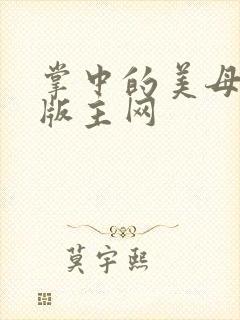 掌中的美母
版主网
莫宇熙